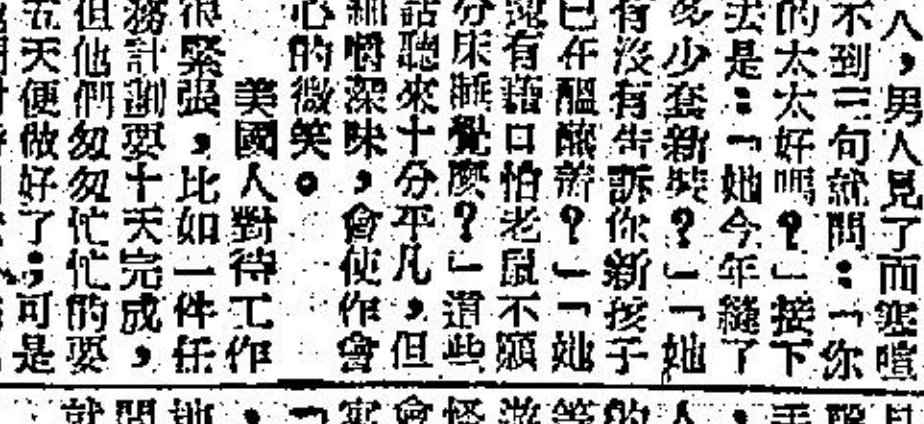 人，男人見了而寒暄
不到三句就問：「你
的太太好嗎？」接下
去是：「她今年縫了
多少套新裝？」「她
有沒有告訴你新孩子
已在醞釀著？」「她
還有藉口怕老鼠不願
分床睡覺麼？」這些
話聽來十分平凡，但
細嚼深味，會使作會
心的微笑。
美國人對待工作
很緊張，比如一件任
務計劃要十天完成，
但他們匆匆忙忙的要
五天便做好了；可是